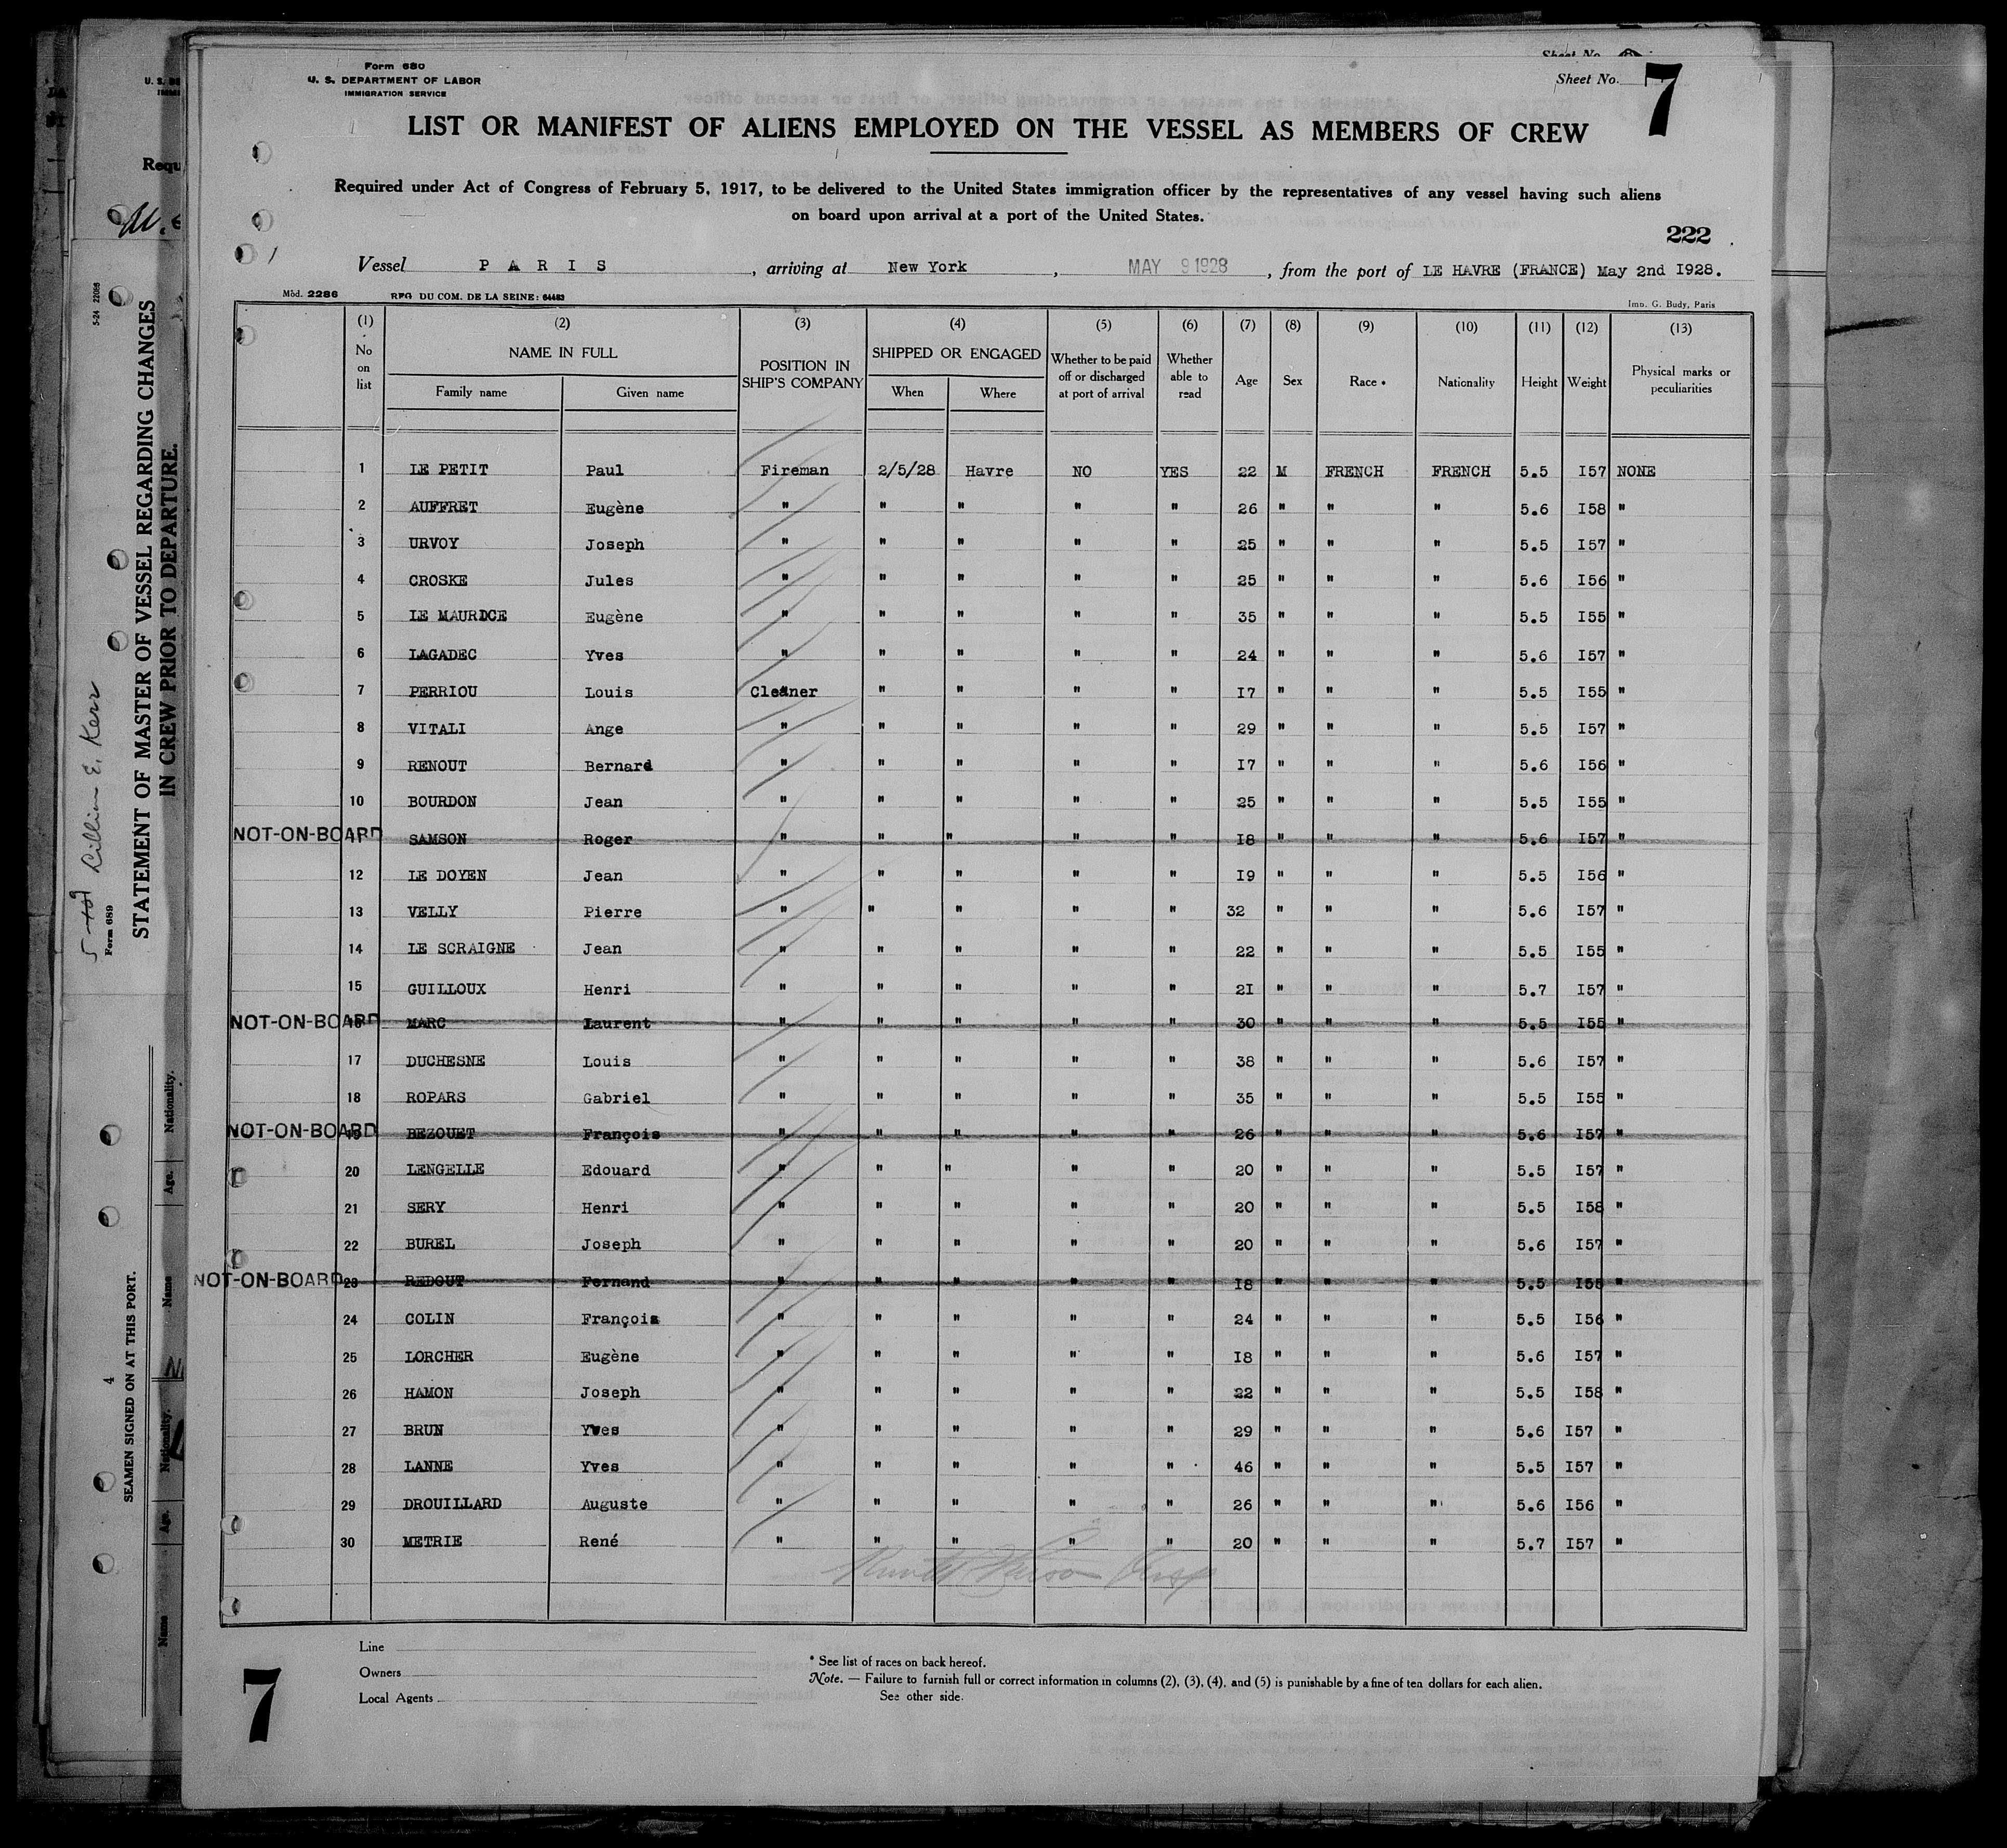 Form 680
U. S. DEPARTMENT OF LABOR
IMMIGRATION SERVICE
Sheet No. 7
LIST OR MANIFEST OF ALIENS EMPLOYED ON THE VESSEL AS MEMBERS OF CREW
Required under Act of Congress of February 5, 1917, to be delivered to the United States immigration officer by the representatives of any vessel having such aliens
on board upon arrival at a port of the United States.
222
Vessel PARIS, arriving at New York, MAY 9 1928, from the port of LE HAVRE (FRANCE) May 2nd I928.
Mod. 2286 REG DU COM. DE LA SEINE: 64483 Imp. G. Budy, Paris
(1) (2) (3) (4) (5) (6) (7) (8) (9) (10) (11) (12) (13)
No on list NAME IN FULL Family name Given name POSITION IN SHIP'S COMPANY SHIPPED OR ENGAGED When Where Whether to be paid off or discharged at port of arrival Whether able to read Age Sex Race * Nationality Height Weight Physical marks or peculiarities
1 LE PETIT Paul Fireman 2/5/28 Havre NO YES 22 M FRENCH FRENCH 5.5 I57 NONE
2 AUFFRET Eugène " " " " " 26 " " " 5.6 I58 "
3 URVOY Joseph " " " " " 25 " " " 5.5 I57 "
4 CROSKE Jules " " " " " 25 " " " 5.6 I56 "
5 LE MAURDCE Eugène " " " " " 35 " " " 5.5 I55 "
6 LAGADEC Yves " " " " " 24 " " " 5.6 I57 "
7 PERRIOU Louis Cleaner " " " " I7 " " " 5.5 I55 "
8 VITALI Ange " " " " " 29 " " " 5.5 I57 "
9 RENOUT Bernard " " " " " I7 " " " 5.6 I56 "
10 BOURDON Jean " " " " " 25 " " " 5.5 I55 "
NOT-ON-BOARD 11 SAMSON Roger " " " " " I8 " " " 5.6 I57 "
12 LE DOYEN Jean " " " " " I9 " " " 5.5 I56 "
13 VELLY Pierre " " " " " 32 " " " 5.6 I57 "
14 LE SCRAIGNE Jean " " " " " 22 " " " 5.5 I55 "
15 GUILLOUX Henri " " " " " 2I " " " 5.7 I57 "
NOT-ON-BOARD 16 MARC Laurent " " " " " 30 " " " 5.5 I55 "
17 DUCHESNE Louis " " " " " 38 " " " 5.6 I57 "
18 ROPARS Gabriel " " " " " 35 " " " 5.5 I55 "
NOT-ON-BOARD 19 BEZOUET François " " " " " 26 " " " 5.6 I57 "
20 LENGELLE Edouard " " " " " 20 " " " 5.5 I57 "
21 SERY Henri " " " " " 20 " " " 5.5 I58 "
22 BUREL Joseph " " " " " 20 " " " 5.6 I57 "
NOT-ON-BOARD 23 REDOUT Fernand " " " " " I8 " " " 5.5 "
24 COLIN François " " " " " 24 " " " 5.5 I56 "
25 LORCHER Eugène " " " " " I8 " " " 5.6 I57 "
26 HAMON Joseph " " " " " 22 " " " 5.5 I58 "
27 BRUN Yves " " " " " 29 " " " 5.6 I57 "
28 LANNE Yves " " " " " 46 " " " 5.5 I57 "
29 DROUILLARD Auguste " " " " " 26 " " " 5.6 I56 "
30 METRIE René " " " " " 20 " " " 5.7 I57 "
Line
Owners
Local Agents
* See list of races on back hereof.
Note. — Failure to furnish full or correct information in columns (2), (3), (4), and (5) is punishable by a fine of ten dollars for each alien.
See other side.
7
Requ
5-24 22086
Lillian E. Kerr
Form 689
STATEMENT OF MASTER OF VESSEL REGARDING CHANGES
IN CREW PRIOR TO DEPARTURE.
4
SEAMEN SIGNED ON AT THIS PORT.
Name Age. Nationality. Name Age. Nationality.